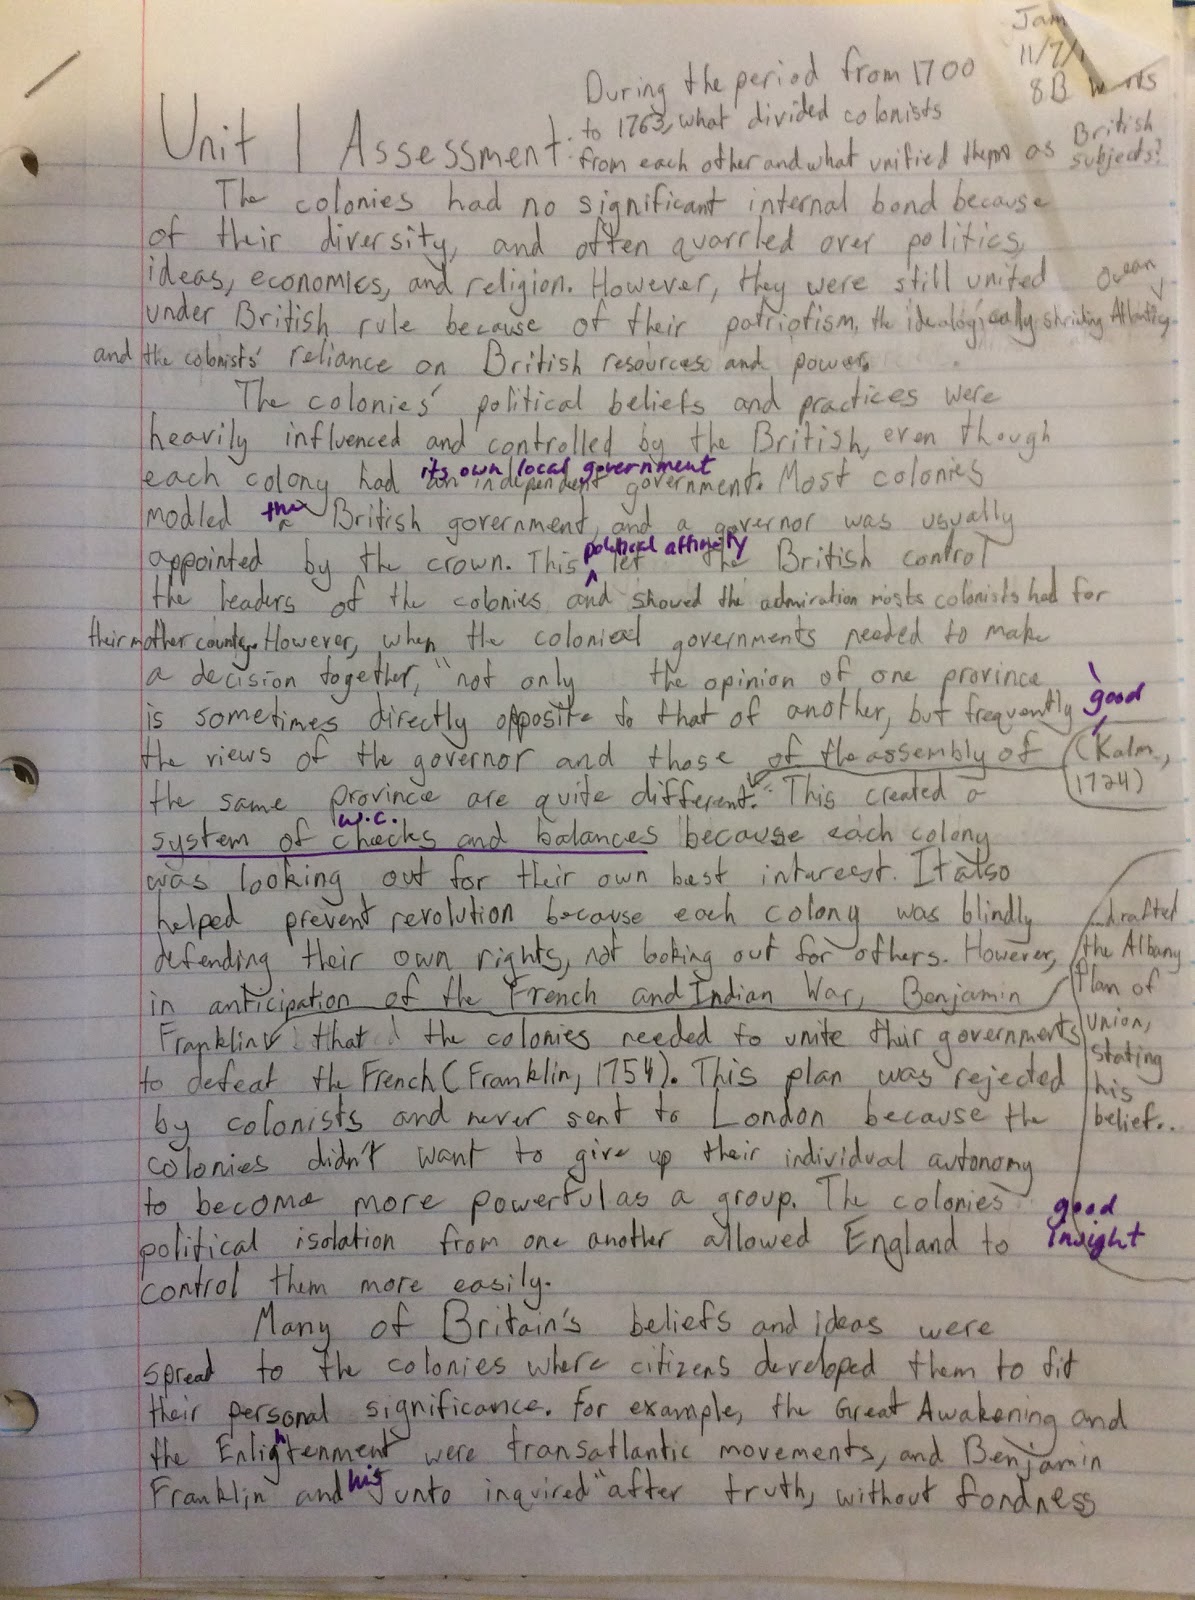 Jam
11/7/1
8B
During the period from 1700
to 1763, what divided colonists
from each other and what unified them as British subjects?
Unit 1 Assessment:
The colonies had no significant internal bond because
of their diversity, and often quarrled over politics,
ideas, economics, and religion. However, they were still united
under British rule because of their patriotism, the ideologically shrinking Atlantic Ocean,
and the colonists' reliance on British resources and power.
The colonies' political beliefs and practices were
heavily influenced and controlled by the British, even though
its own local government
each colony had an independent government. Most colonies
modled the British government, and a governor was usually
political affinity
appointed by the crown. This let the British control
the leaders of the colonies and showed the admiration mosts colonists had for
their mother country. However, when the colonial governments needed to make
a decision together, "not only the opinion of one province
is sometimes directly opposite to that of another, but frequently
good
the views of the governor and those of the assembly of
(Kalm, 1724)
the same province are quite different." This created a
w.c.
system of checks and balances because each colony
was looking out for their own best interest. It also
helped prevent revolution because each colony was blindly
defending their own rights, not looking out for others. However,
in anticipation of the French and Indian War, Benjamin
...drafted
the Albany
Plan of
Union,
stating
his
belief..
Franklin that the colonies needed to unite their governments
to defeat the French (Franklin, 1754). This plan was rejected
by colonists and never sent to London because the
colonies didn't want to give up their individual autonomy
to become more powerful as a group. The colonies
political isolation from one another allowed England to
good insight
control them more easily.
Many of Britain's beliefs and ideas were
spread to the colonies where citizens developed them to fit
their personal significance. For example, the Great Awakening and
the Enlightenment were transatlantic movements, and Benjamin
Franklin and his junto inquired "after truth, without fondness